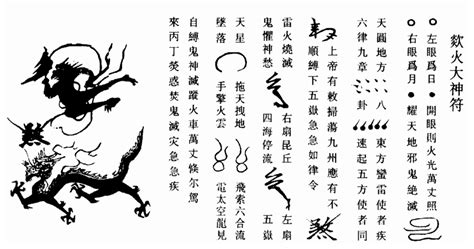 欻火大神符
●左眼爲日●開眼則火光萬丈照
●右眼爲月●耀天地邪鬼絕滅
天圓地方 八 東方蠻雷使者
六律九章 卦 速起五方使者同
上帝有敕掃蕩九州應有不
順縛下五嶽急急如律令
雷火燒滅 右扇昆丘 左扇
鬼懼神愁 四海停流 五嶽
天星 拖天拽地 飛索六合流
墜落 手擎火雲 電太空龍見
自縛鬼神滅蹤火車萬丈倏尔駕
來丙丁熒惑焚鬼滅灾急急疾